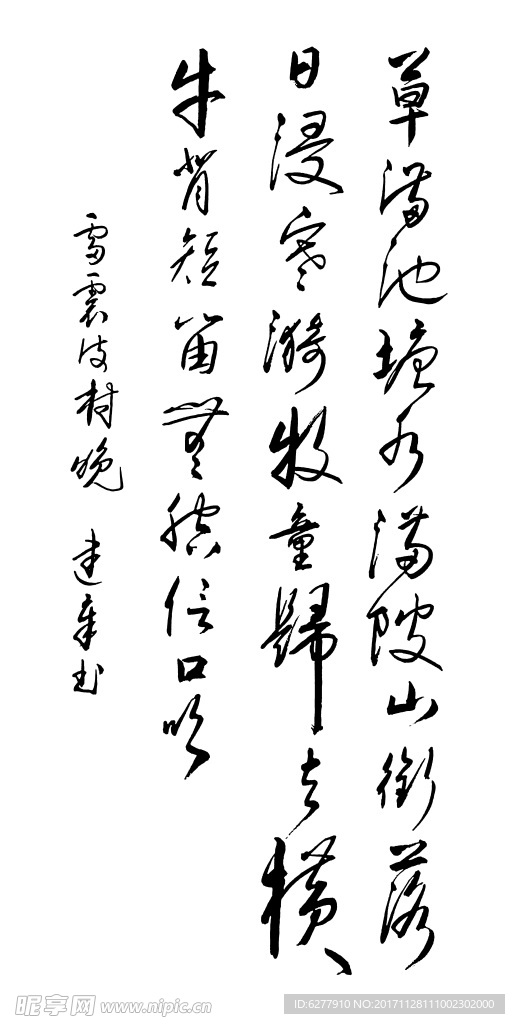 草满池塘水满陂山衔落
日浸寒漪牧童歸去横
牛背短笛無腔信口吹
雷震诗村晚 建章书
昵享网 www.nipic.cn
ID:6277910 NO:20171128111002302000